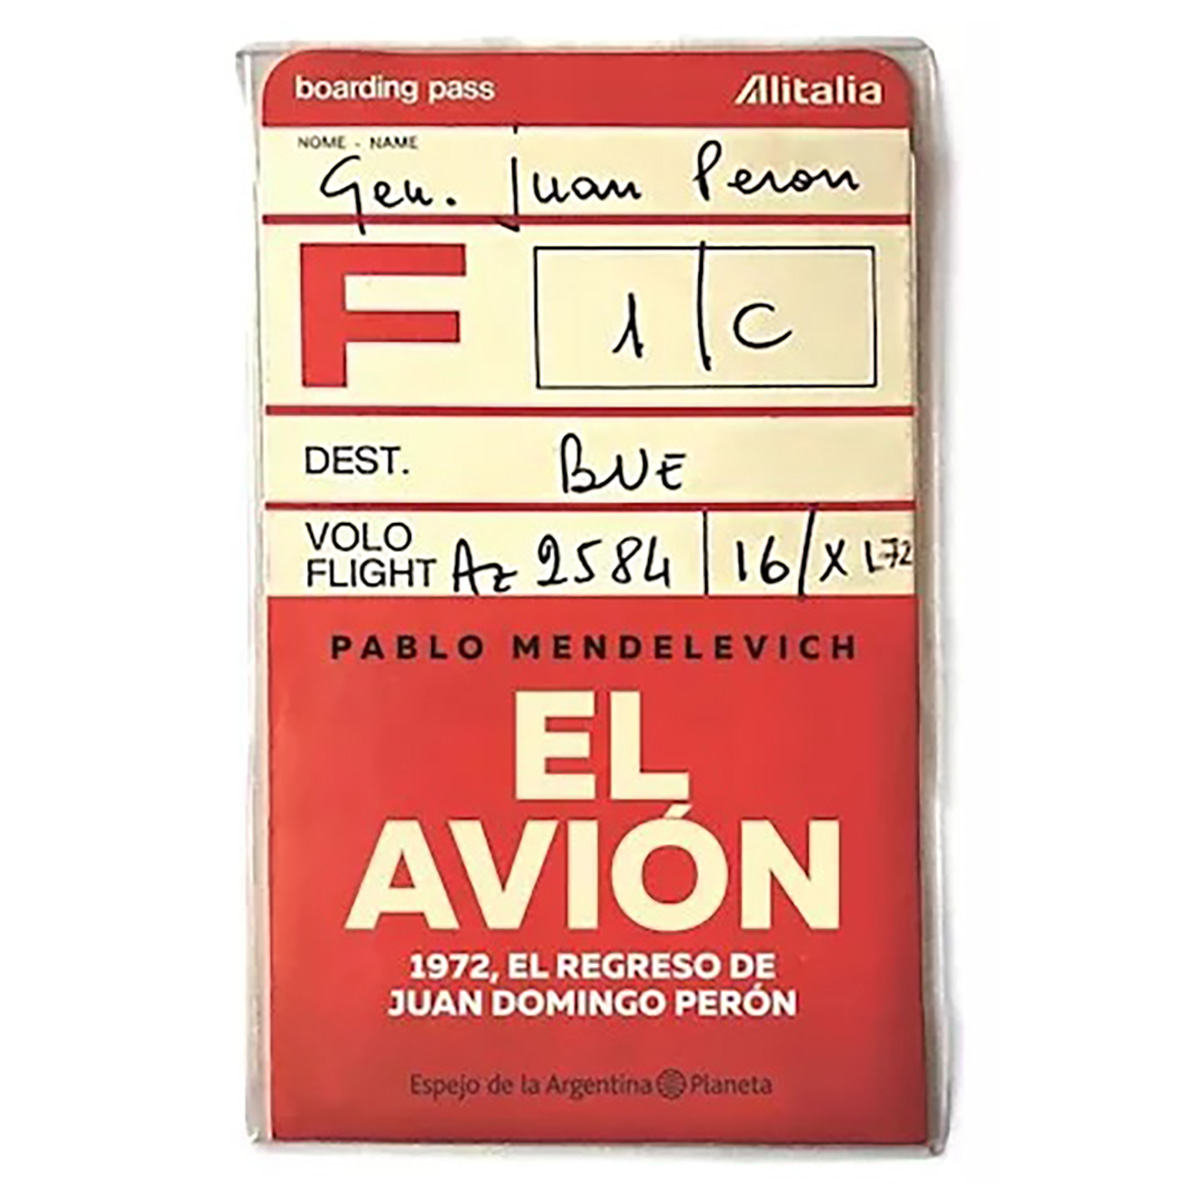 boarding pass Alitalia
NOME - NAME
Gen. Juan Peron
F 1/C
DEST. BUE
VOLO
FLIGHT Az 2584 16/X 1-72
PABLO MENDELEVICH
EL
AVIÓN
1972, EL REGRESO DE
JUAN DOMINGO PERÓN
Espejo de la Argentina Planeta